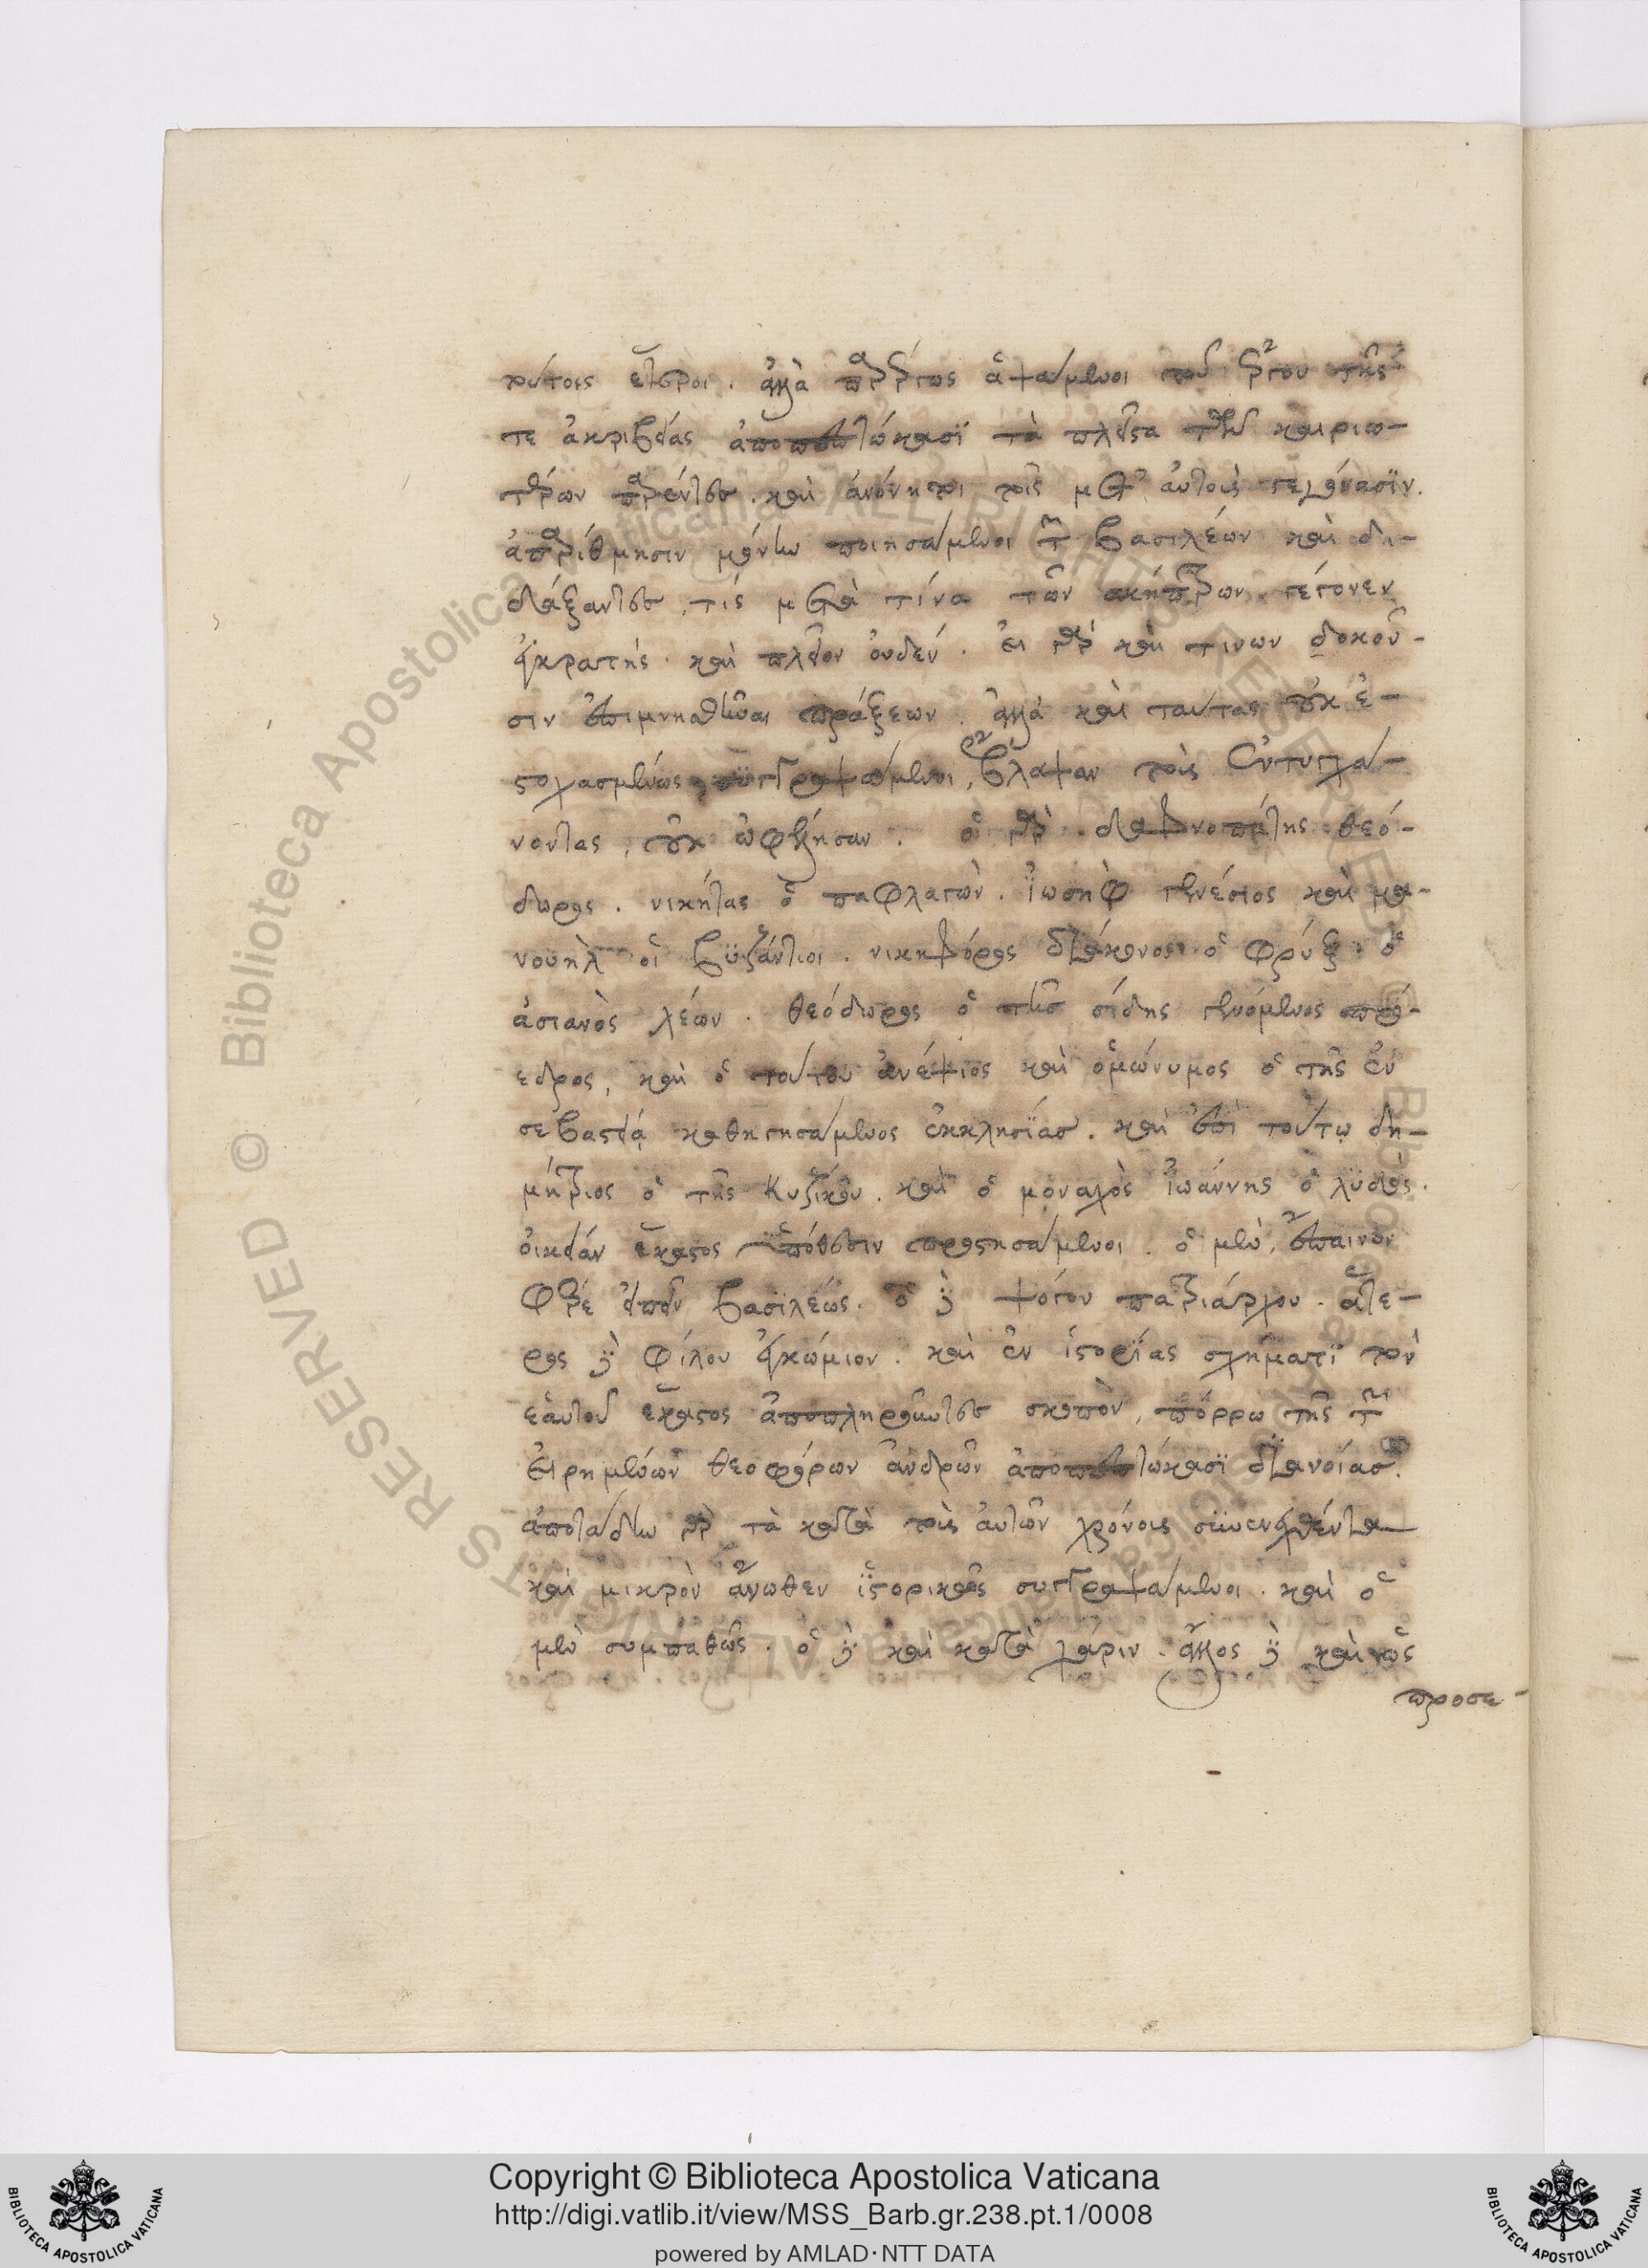 τούτοις ἕτεροι. ἀλλὰ παρέργως ἁψάμενοι τοῦ ἔργου τῆς
τε ἀκριβείας ἀποπεπτώκασϊ τὰ πλεῖστα τῶν καιριω-
τέρων παρέντες. καὶ ἀνόνητοι τοῖς μετ' αὐτοὺς γεγόνασϊν.
ἀπαρίθμησιν μόνην ποιησάμενοι τῶν βασιλέων καὶ δι-
δάξαντες, τίς μετὰ τίνα τῶν σκήπτρων γέγονεν
ἐγκρατής. καὶ πλεῖον οὐδέν. εἰ γάρ καὶ τινων δοκοῦ-
σιν ἐπιμνησθῆναι πράξεων. ἀλλά καὶ ταύτας οὐκ ἐ-
στοχασμένως συγγραψάμενοι, ἔβλαψαν τοὺς ἐντυγχά-
νοντας, οὐκ ὠφέλησαν. ὁ γὰρ δαφνοπάτης θεό-
δωρος. νικήτας ὁ παφλαγὼν. ἰωσὴφ γενέσιος καὶ μα-
νουὴλ οἱ βϋζάντιοι. νικηφόρος διάκονος ὁ φρύξ. ὁ
ἀσιανὸς λέων. θεόδωρος ὁ τῆς σίδης γενόμενος πρό-
εδρος, καὶ ὁ τούτου ἀνέψιὸς καὶ ὁμώνυμος ὁ τῆς ἐν
σεβαστείᾳ καθηγησάμενος ἐκκλησϊας. καὶ ἐπὶ τούτῳ δη-
μήτριος ὁ τῆς κυζίκου. καὶ ὁ μοναχὸς ἰωάννης ὁ λϋδός.
οἰκείαν ἕκαστος ὑπόθεσιν προστησάμενοι. ὁ μὲν, ἔπαινον
φέρε εἰπεῖν βασϊλέως. ὁ δὲ ψόγον πατριάρχου. ἅτε-
ρος δὲ φίλου ἐγκώμιον. καὶ ἐν ἱστορίας σχήματϊ τὸν
ἑαυτοῦ ἕκαστος ἀποπληροῦντες σκοπὸν, πόρρω τῆς τῶν
εἰρημένων θεοφόρων ἀνδρῶν ἀποπεπτώκασϊ διανοίας.
ἀποτάδην γὰρ τὰ κατὰ τοὺς αὐτῶν χρόνους σϋνενεχθέντα
καὶ μικρὸν ἄνωθεν ἱστορικῶς συγγραψάμενοι. καὶ ὁ
μὲν συμπαθῶς. ὁ δὲ καὶ κατὰ χάριν. ἄλλος δὲ καὶ ὡς
προσε-
Copyright © Biblioteca Apostolica Vaticana
http://digi.vatlib.it/view/MSS_Barb.gr.238.pt.1/0008
powered by AMLAD·NTT DATA